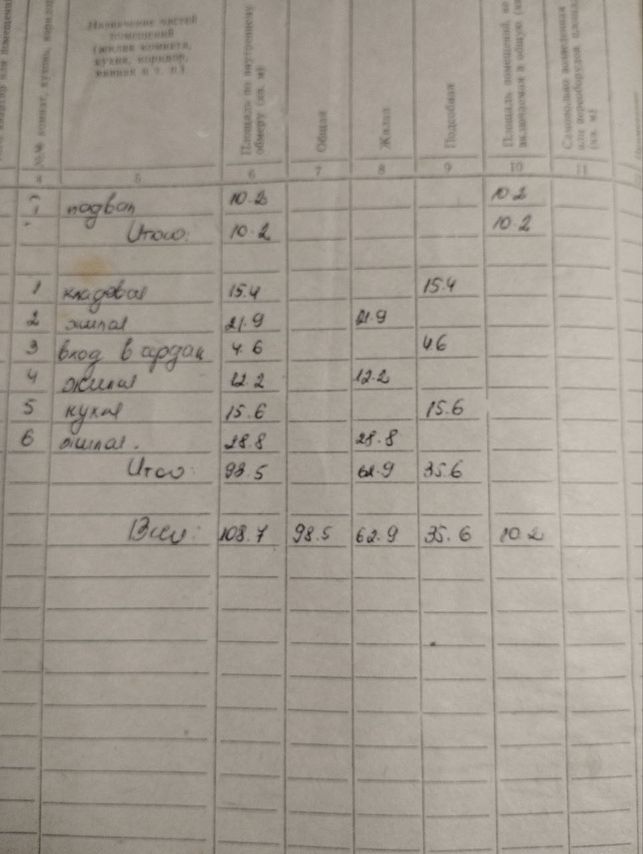 Назначение частей
помещений
(жилая комната,
кухня, коридор,
ванная и т. п.)
Площадь по внутреннему
обмеру (кв. м)
Общая
Жилая
Подсобная
Площадь помещений, не
включаемая в общую
Самовольно возведенная
или переоборудов. площадь
(кв. м)
4 5 6 7 8 9 10 11
подвал 10.2 10.2
Итого: 10.2 10.2
1 кладовая 15.4 15.4
2 жилая 21.9 21.9
3 вход в ардан 4.6 4.6
4 жилая 12.2 12.2
5 кухня 15.6 15.6
6 жилая. 28.8 28.8
Итого: 98.5 62.9 35.6
Всего: 108.7 98.5 62.9 35.6 10.2